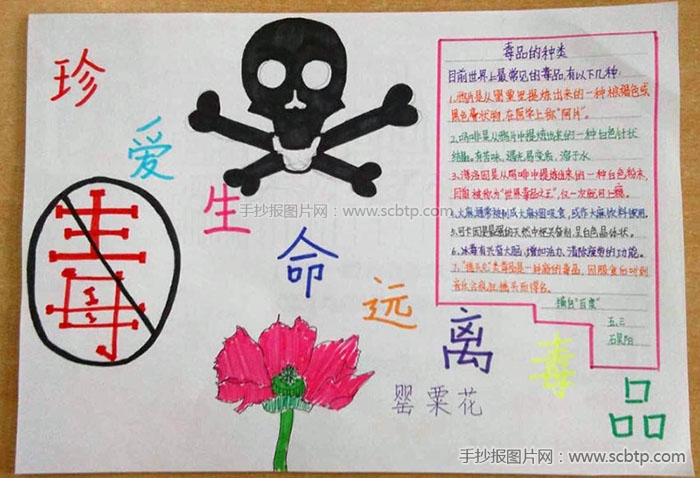 珍
爱
生
命
远
离
毒
品
毒
罂粟花
毒品的种类
目前世界上最常见的毒品,有以下几种:
1.鸦片是从罂粟里提炼出来的一种棕褐色或
黑色膏状物,在医学上称"阿片"。
2.吗啡是从鸦片中提炼出来的一种白色针状
结晶。有苦味、遇光易变质、溶于水
3.海洛因是从吗啡中提炼出来的一种白色粉末,
目前被称为"世界毒品之王",仅一次就可上瘾。
4.大麻通常被制成大麻烟吸食,或作大麻饮料使用。
5.可卡因是最强的天然中枢兴奋剂,呈白色晶体状。
6.冰毒有兴奋大脑、增加活力、消除疲劳的功能。
7."摇头丸"
是一种新的毒品,因服食后
音乐
摇头而得名。
摘自"百度"
五、三
手抄报图片网:www.scbtp.com
手抄报图片网:www.scbtp.com